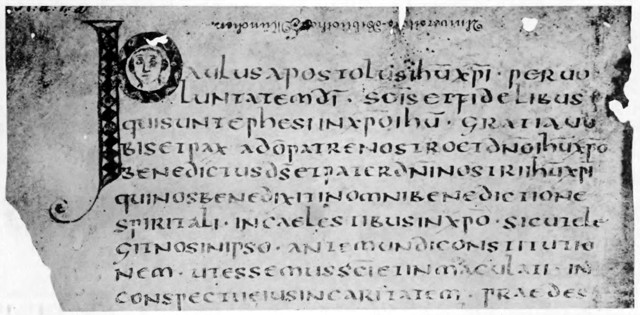 Universitäts-Bibliothek München.
PAULUS APOSTOLUS IHU̅ XPI̅ · PER UO
LUNTATEM DI̅ · SCI̅S ET FIDELIBUS
QUI SUNT EPHESI IN XPO IHU̅ · GRATIA UO
BIS ET PAX A DO̅ PATRE NOSTRO ET DN̅O IHU̅ XPO
BENEDICTUS DS̅ ET PATER DN̅I NOSTRI IHU̅ XPI
QUI NOS BENEDIXIT IN OMNI BENEDICTIONE
SPIRITALI · IN CAELESTIBUS IN XPO · SICUT ELE
GIT NOS IN IPSO · ANTE MUNDI CONSTITUTIO
NEM · UT ESSEMUS SCI̅ ET INMACULATI · IN
CONSPECTU EIUS IN CARITATEM · PRAEDES